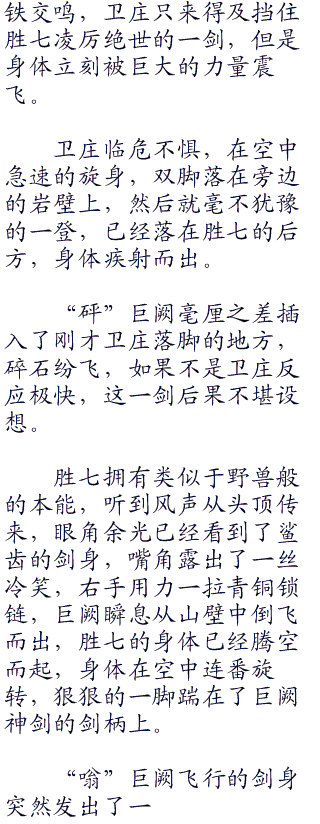 铁交鸣，卫庄只来得及挡住
胜七凌厉绝世的一剑，但是
身体立刻被巨大的力量震
飞。
卫庄临危不惧，在空中
急速的旋身，双脚落在旁边
的岩壁上，然后就毫不犹豫
的一登，已经落在胜七的后
方，身体疾射而出。
“砰”巨阙毫厘之差插
入了刚才卫庄落脚的地方，
碎石纷飞，如果不是卫庄反
应极快，这一剑后果不堪设
想。
胜七拥有类似于野兽般
的本能，听到风声从头顶传
来，眼角余光已经看到了鲨
齿的剑身，嘴角露出了一丝
冷笑，右手用力一拉青铜锁
链，巨阙瞬息从山壁中倒飞
而出，胜七的身体已经腾空
而起，身体在空中连番旋
转，狠狠的一脚踹在了巨阙
神剑的剑柄上。
“嗡”巨阙飞行的剑身
突然发出了一